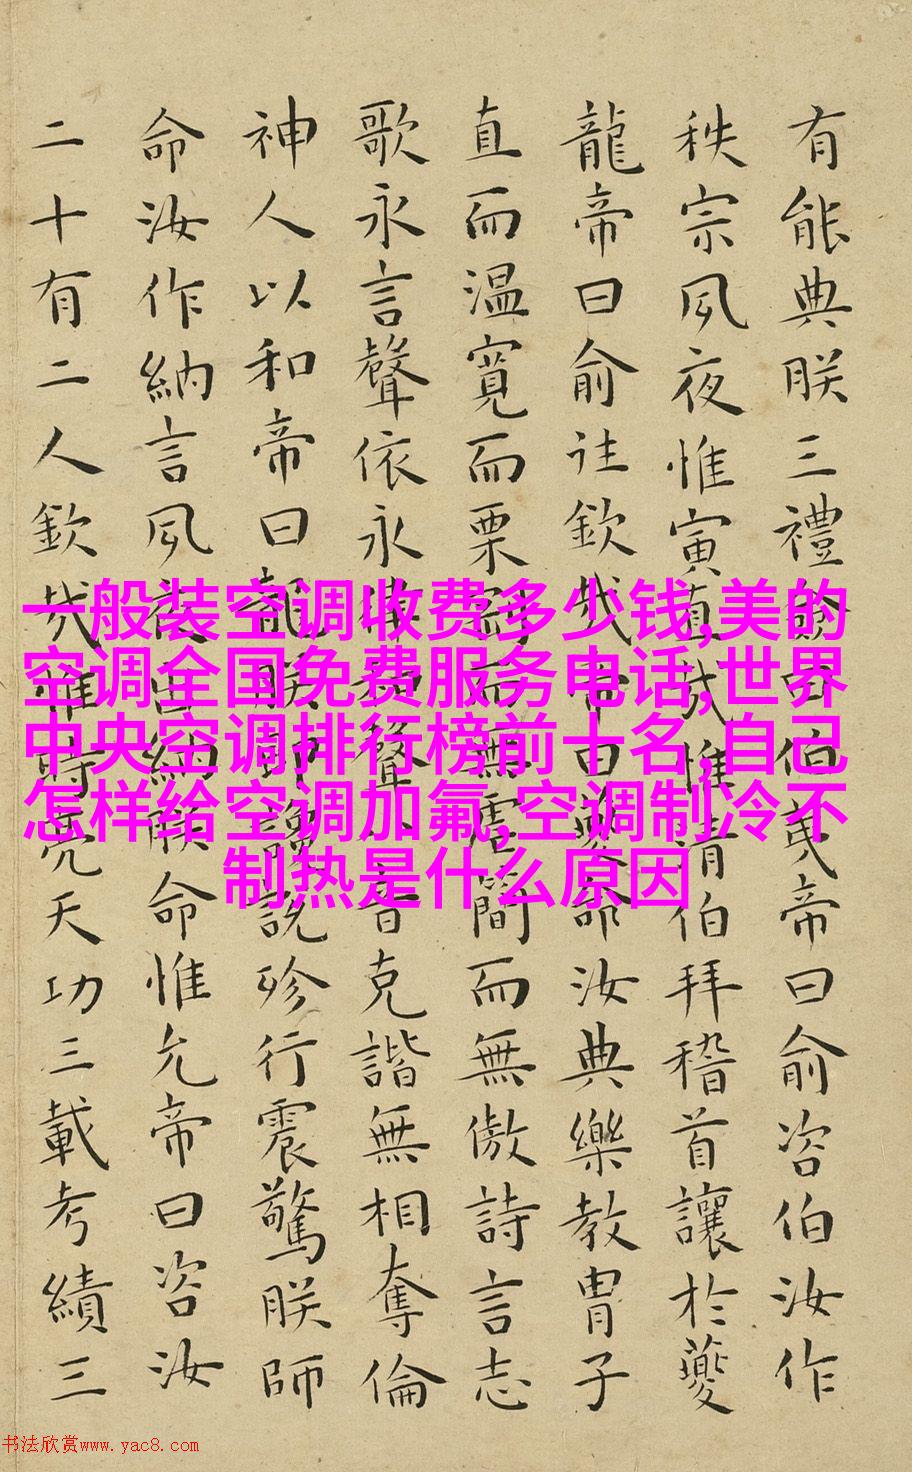 有能典朕三禮僉曰伯夷帝曰俞咨伯汝作
秩宗夙夜惟寅直哉惟清伯拜稽首讓於夔
龍帝曰俞往欽哉帝曰夔命汝典樂教胄子
直而温寬而栗剛而無虐簡而無傲詩言志
歌永言聲依永律和聲八音克諧無相奪倫
神人以和帝曰龍朕堲讒說殄行震驚朕師
命汝作納言夙夜出納朕命惟允帝曰咨汝
二十有二人欽哉惟時亮天功三載考績三
一般装空调收费多少钱,美的
空调全国免费服务电话,世界
中央空调排行榜前十名,自己
怎样给空调加氟,空调制冷不
制热是什么原因
书法欣赏www.yac8.com